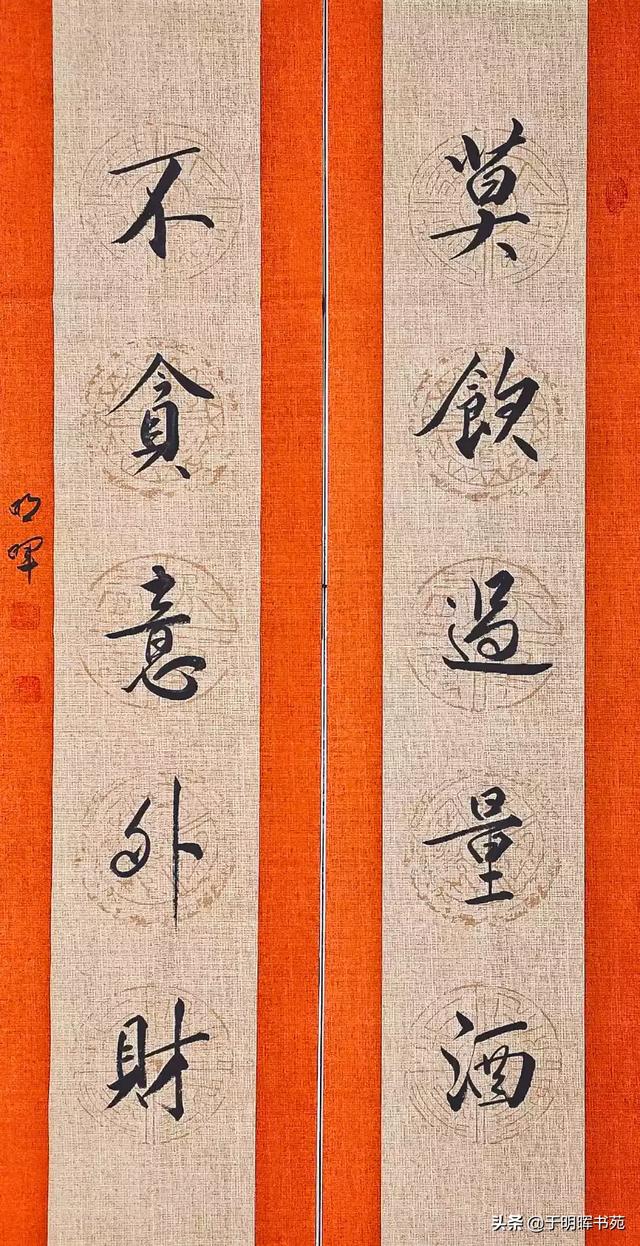 莫飲過量酒
不貪意外財
明暉
头条 @于明晖书苑